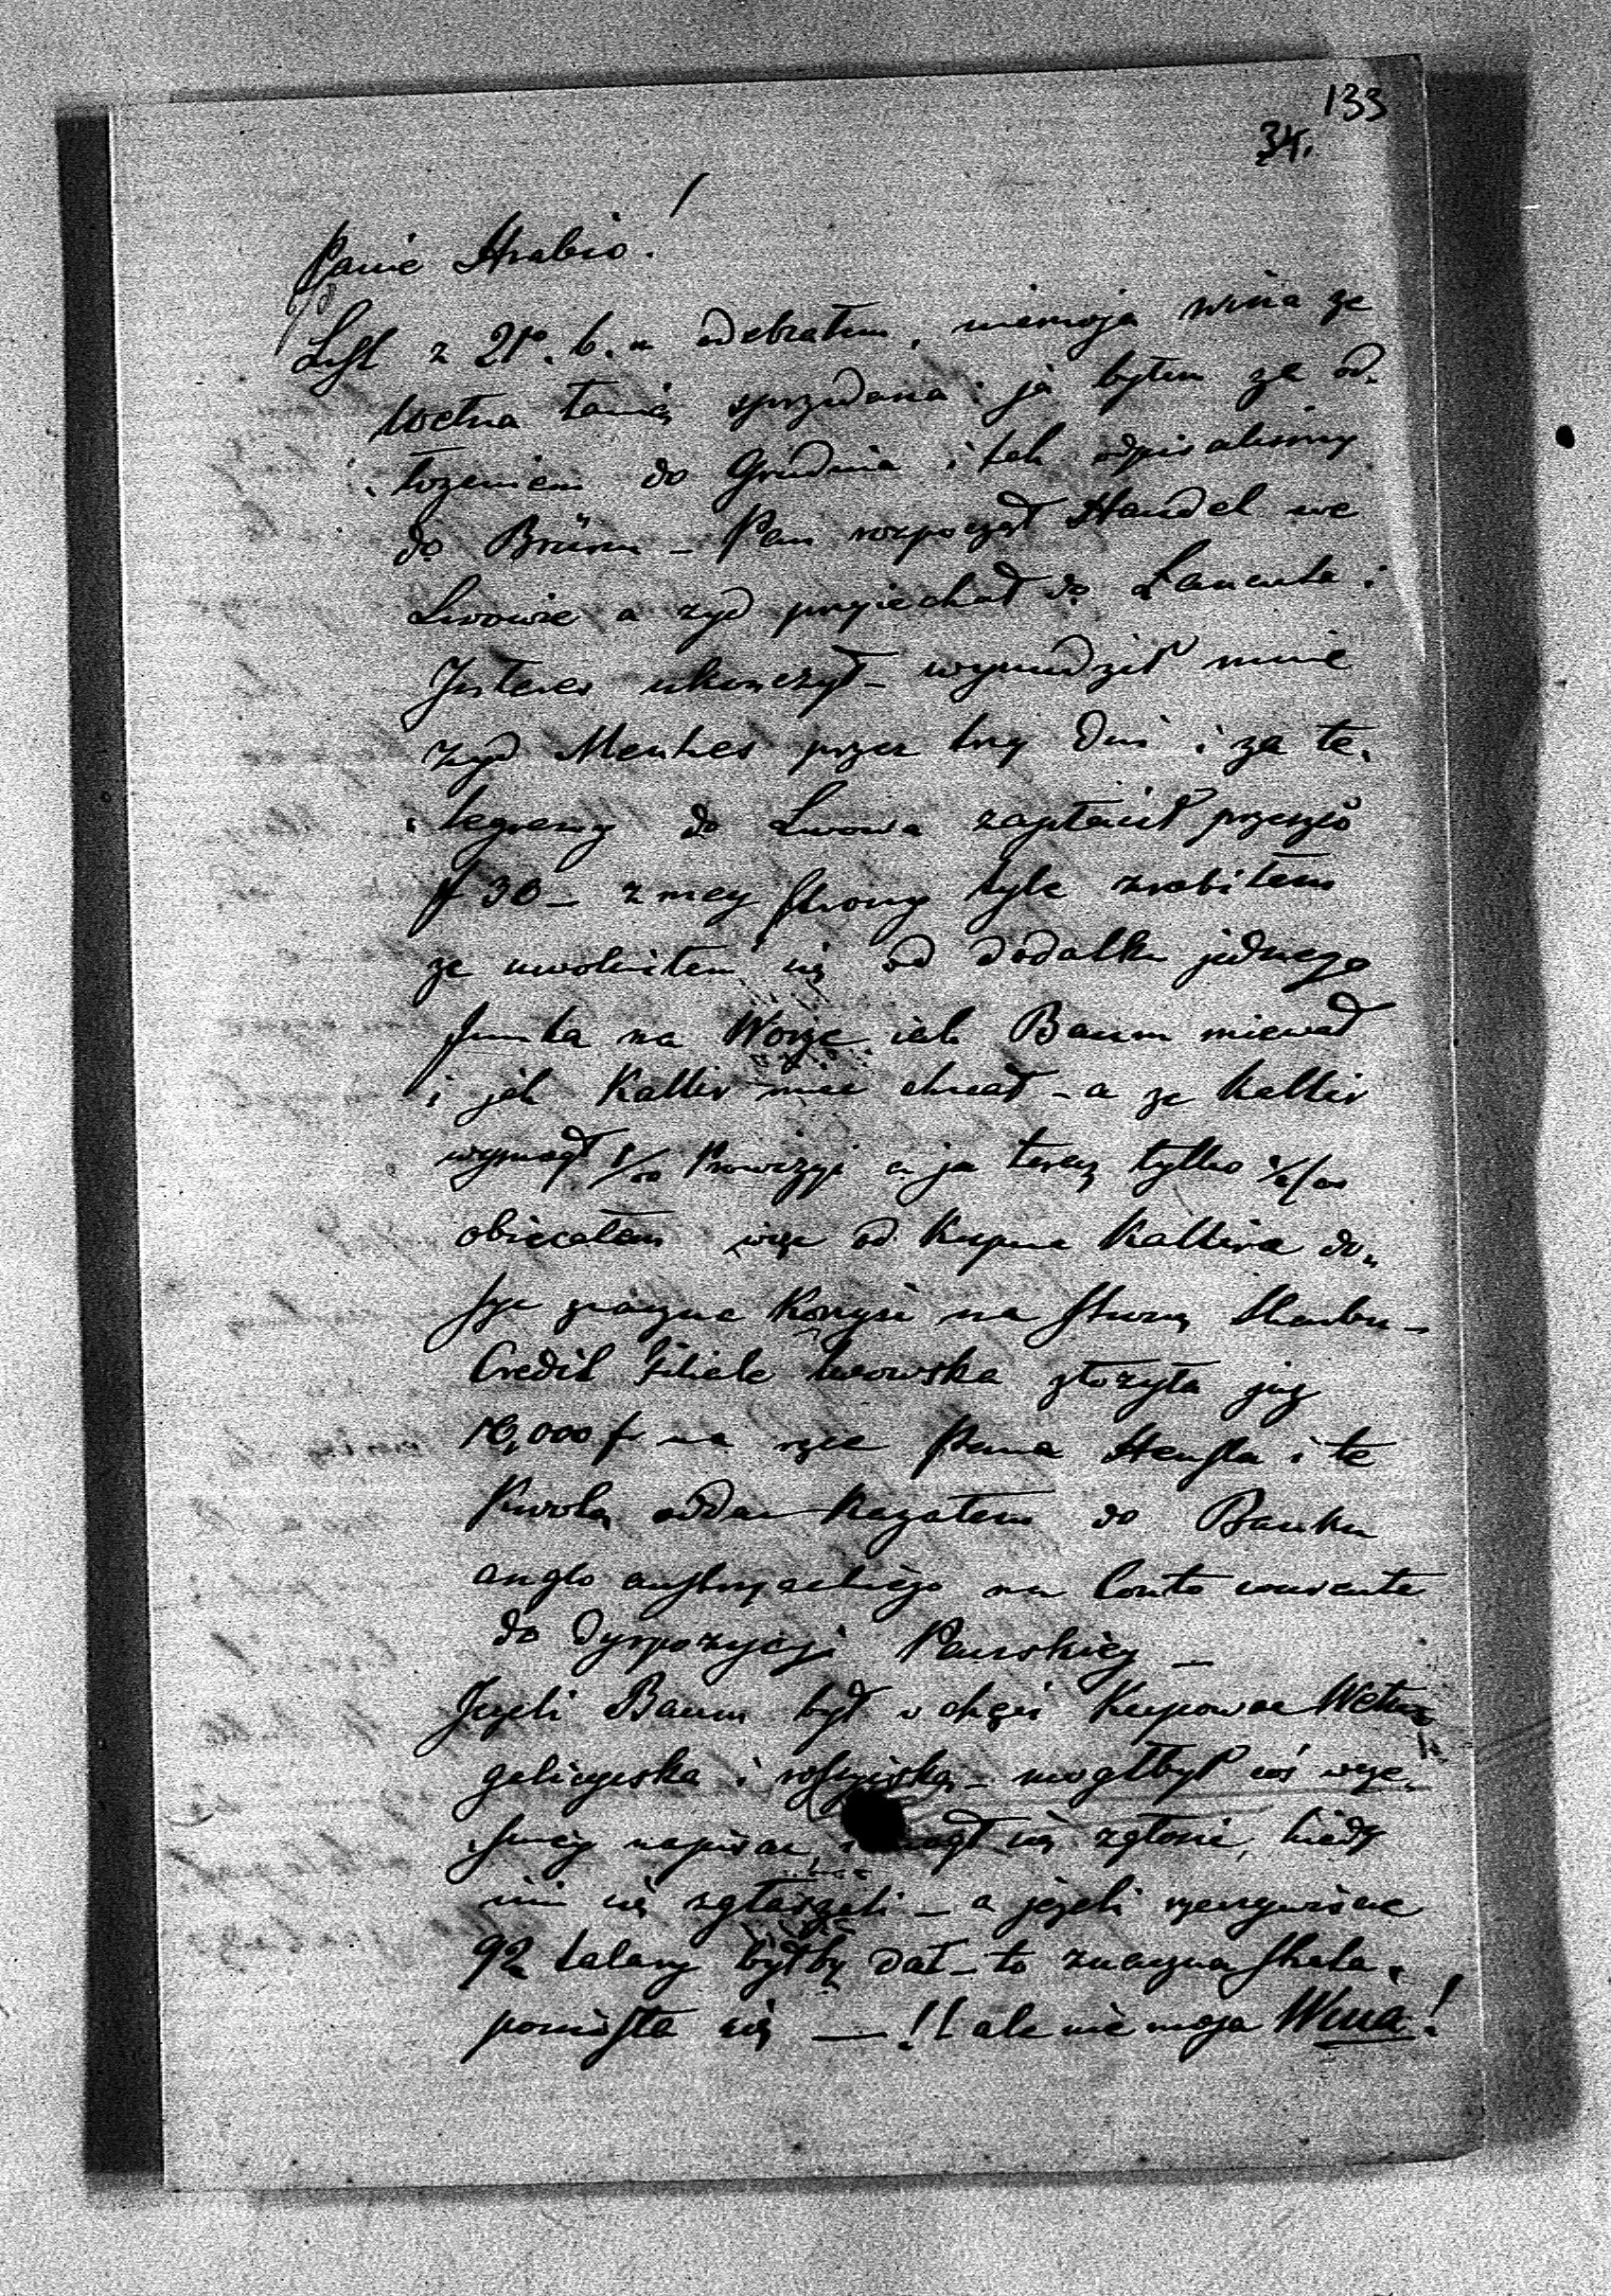 133
34.
Panie Hrabio!
List z 21o. b. m odebrałem, niemoja wina ze
wełna tanią sprzedana; ja byłem za od-
-łozeniem do Grudnia i tak odpisalismy
do Brünn - Pan rozpoczął Handel we
Lwowie a zyd przyiechał do Łancuta i
Interes ukonczył - wynudził mnie
zyd Menkes przez trzy dni i za te-
-legramy do Lwowa zapłacił przeszło
f 30 - z mey strony tyle zrobiłem
ze uwolniłem się od dodatku jednego
funta na Worze iak Baum miewał
i jak Kallir miec chciał - a ze Kallir
wymogł Prowizyi a ja teraz tylko
obiecałem więc od Kupna Kallira do-
syc znaczne Korzysci na stronę Skarbu -
Credit Filiale lwowska złozyła juz
10,000 f na ręce Pana Hensla i te
Kwotę oddac Kazałem do Banku
anglo austryackiego na Conto corrente
do dyspozycyi Panskiey -
Jezeli Baum był w chęci Kupowac Wełnę
galicyiska i rossyiską - mogłbył cos wcze-
-sniey napisac, i mogł się zgłosic, kiedy
inni się zgłaszali - a jezeli rzeczywiscie
92 talary byłby dał - to znaczna strata
poniosła się — !! ale nie moja Wina!